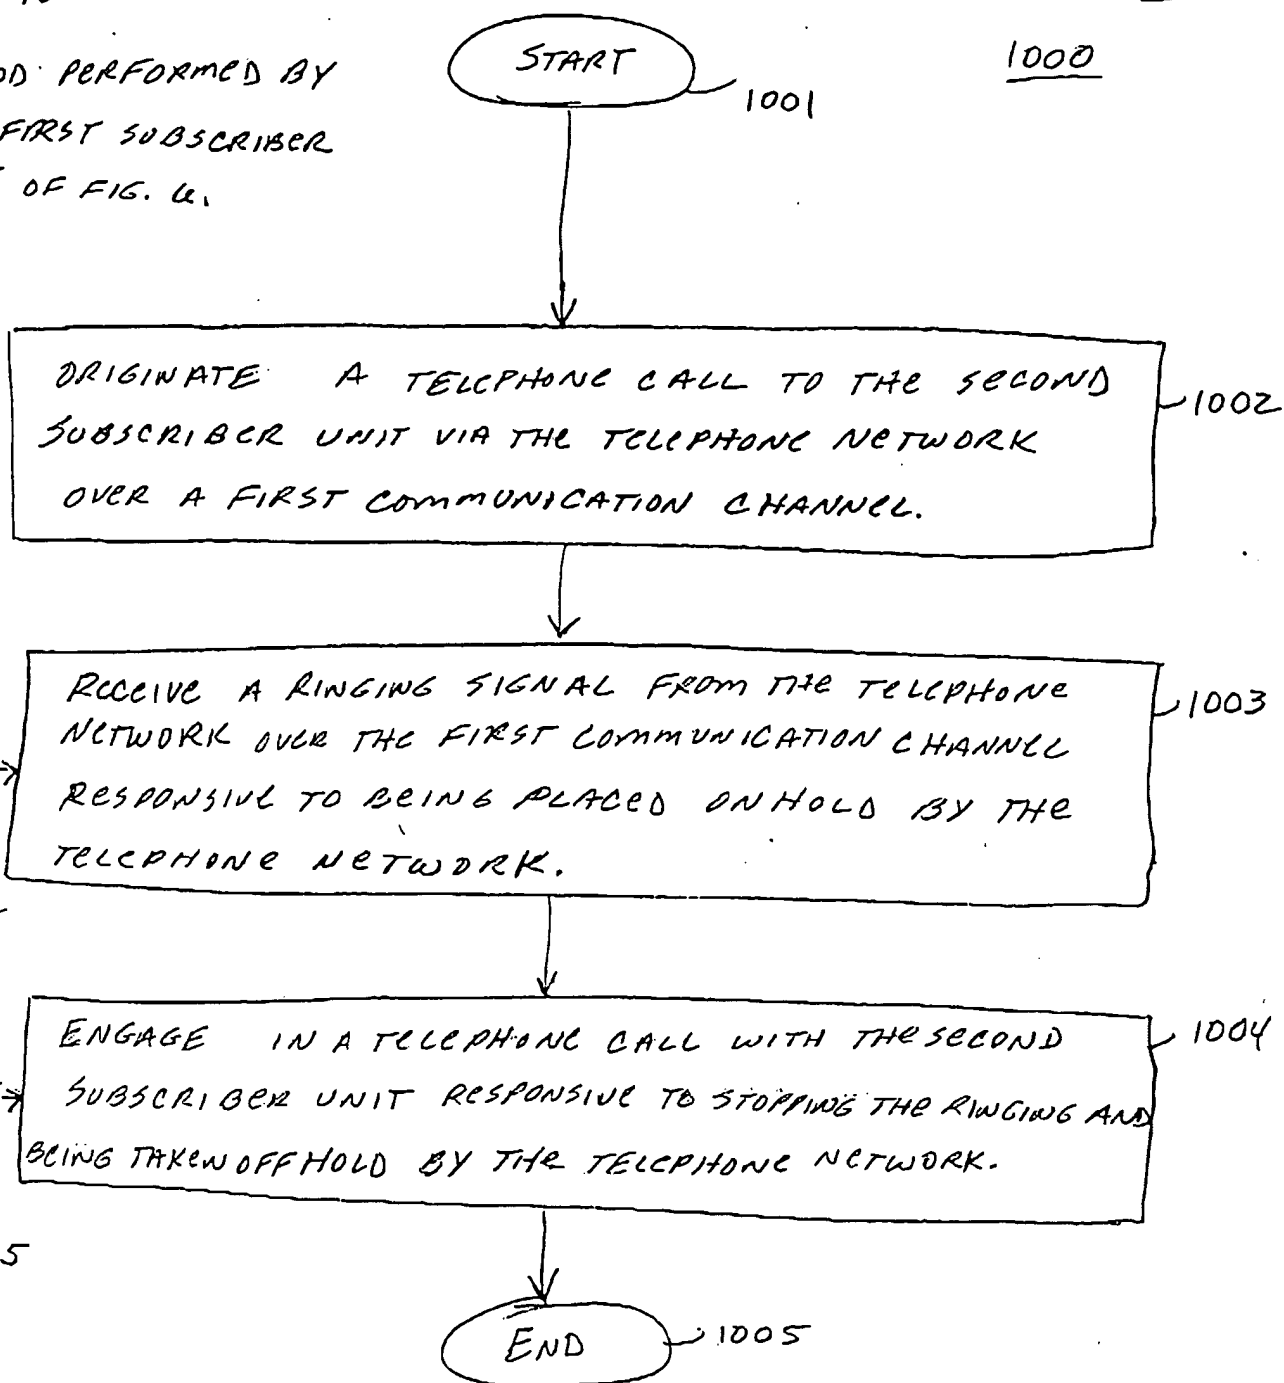 START
1001
1000
PERFORMED BY
FIRST SUBSCRIBER
OF FIG. 6.
ORIGINATE A TELEPHONE CALL TO THE SECOND
SUBSCRIBER UNIT VIA THE TELEPHONE NETWORK
OVER A FIRST COMMUNICATION CHANNEL.
1002
RECEIVE A RINGING SIGNAL FROM THE TELEPHONE
NETWORK OVER THE FIRST COMMUNICATION CHANNEL
RESPONSIVE TO BEING PLACED ON HOLD BY THE
TELEPHONE NETWORK.
1003
ENGAGE IN A TELEPHONE CALL WITH THE SECOND
SUBSCRIBER UNIT RESPONSIVE TO STOPPING THE RINGING AND
BEING TAKEN OFF HOLD BY THE TELEPHONE NETWORK.
1004
5
END
1005